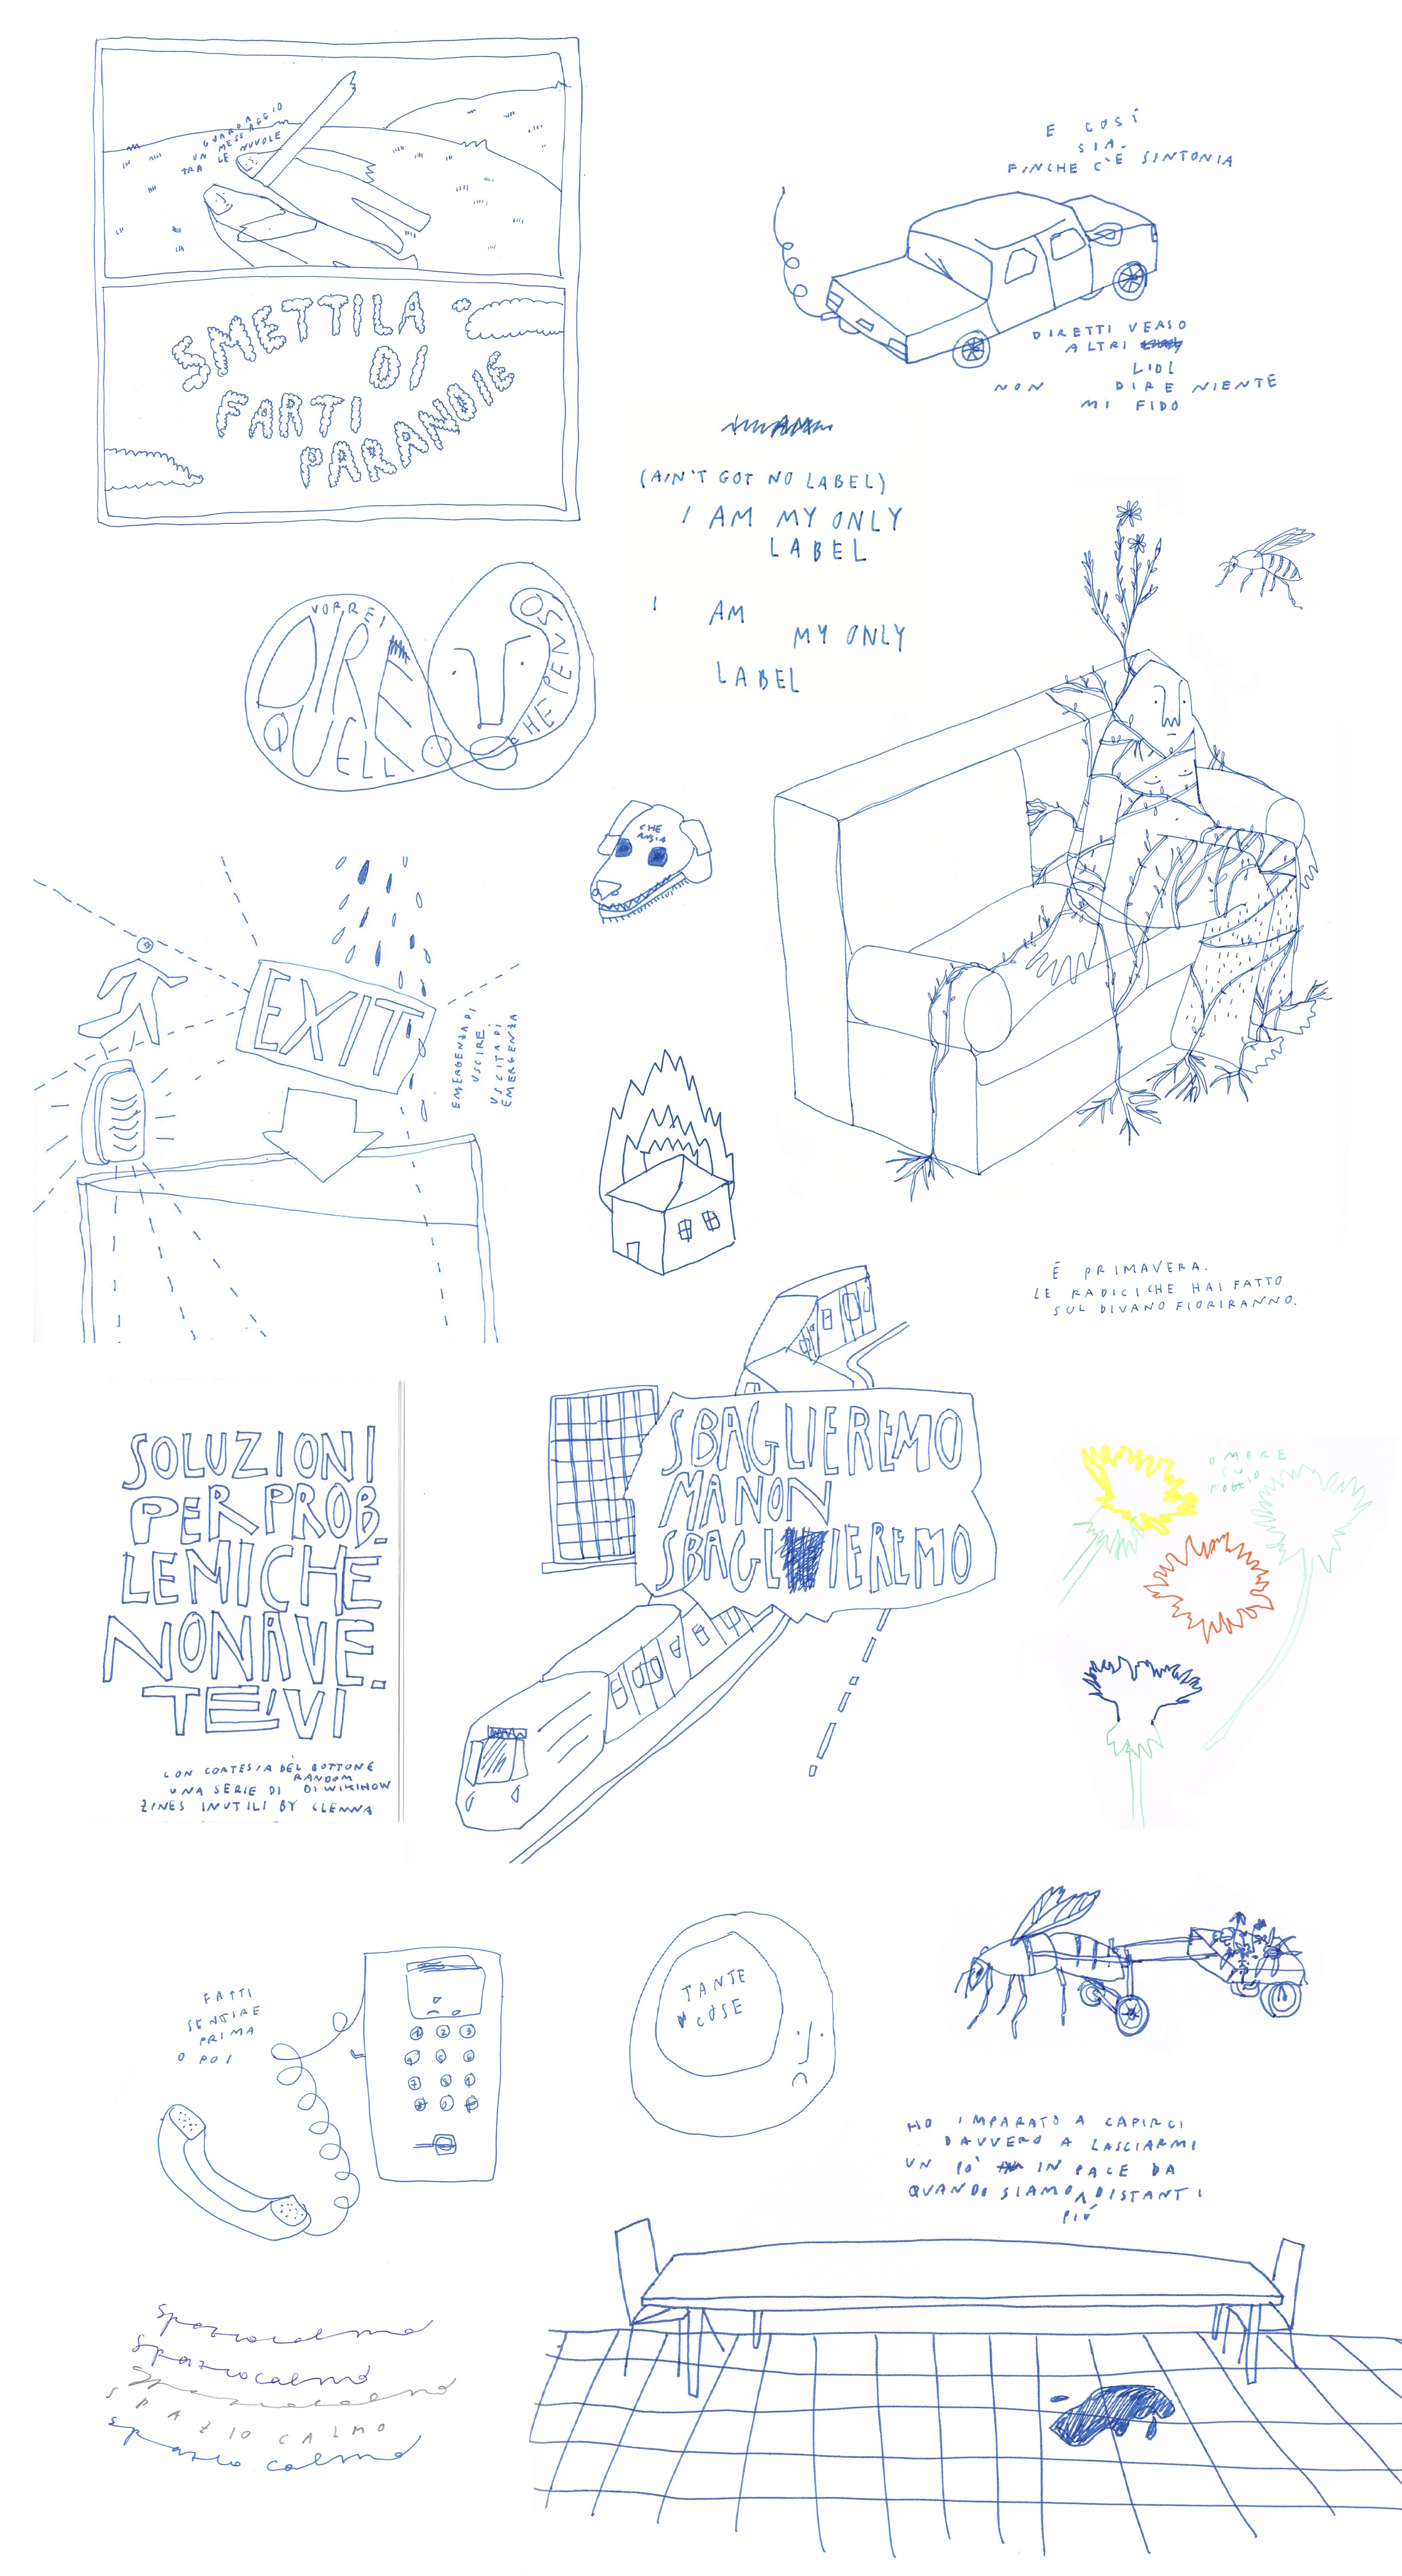 GUARDA
UN MESSAGGIO
TRA LE NUVOLE
SMETTILA
DI
FARTI
PARANOIE
E COSÍ
SIA.
FINCHE C'È SINTONIA
DIRETTI VERSO
ALTRI
LIDI
NON DIRE NIENTE
MI FIDO
(AIN'T GOT NO LABEL)
I AM MY ONLY
LABEL
I AM
MY ONLY
LABEL
VORREI
DIRE
QUELLO
CHE PENSO
CHE
ANSIA
EXIT
EMERGENZA DI
USCIRE
USCITA DI
EMERGENZA
È PRIMAVERA.
LE RADICI CHE HAI FATTO
SUL DIVANO FIORIRANNO.
SOLUZIONI
PER PROB-
LEMI CHE
NON AVE-
TE/VI
CON CORTESIA DEL BOTTONE
RANDOM
UNA SERIE DI DI WIKIHOW
ZINES INUTILI BY CLENNA
SBAGLIEREMO
MA NON
SBAGLIEREMO
OMBRE
SUL
FOGLIO
FATTI
SENTIRE
PRIMA
O POI
1 2 3
4 5 6
7 8 9
* 0 #
TANTE
COSE
HO IMPARATO A CAPIRCI
DAVVERO A LASCIARMI
UN PO' IN PACE DA
QUANDO SIAMO DISTANTI
PIÚ
spaziocalmo
spaziocalmo
spaziocalmo
SPAZIO CALMO
spazio calmo